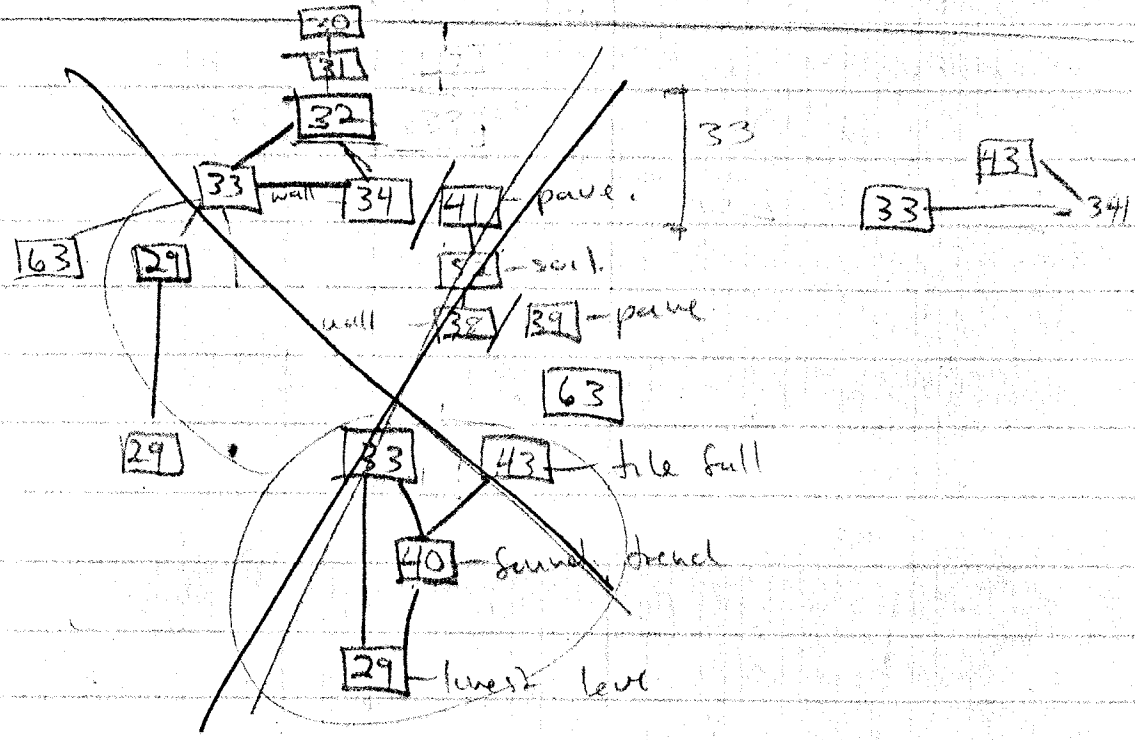 31
32
33
33 wall 34 / 41 - pave.
43
33 341
63 29 - soil.
wall - 38 / 39 - pave
63
29 33 43 - tile fall
40 - found trench
29 - lowest level